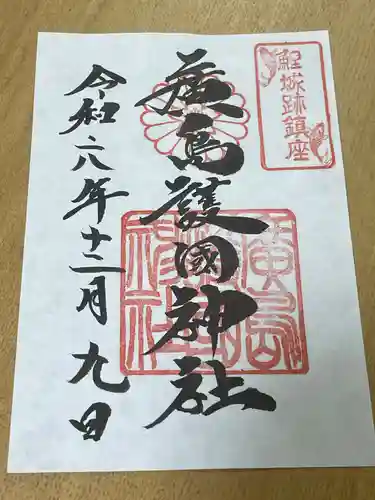 鯉城跡鎮座
廣島護國神社
令和六年十二月九日
廣島
護國
神社